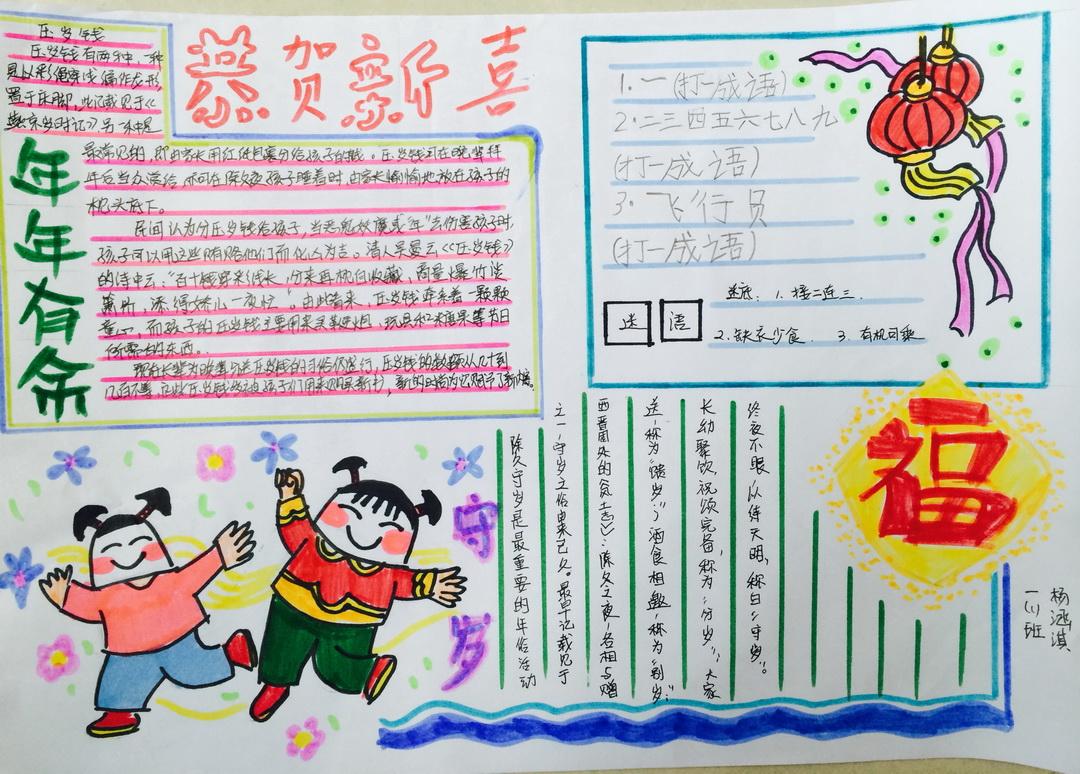 恭贺新喜
压岁钱
压岁钱有两种,一种
是以彩绳穿线编作龙形,
置于床脚,此记载见于《
燕京岁时记》另一种是
最常见的,即由家长用红纸包裹分给孩子的钱。压岁钱可在晚辈拜
年后当众赏给,亦可在除夕夜孩子睡着时,由家长偷偷地放在孩子的
枕头底下。
民间认为分压岁钱给孩子,当恶鬼妖魔或"年"去伤害孩子时,
孩子可以用这些钱贿赂他们而化凶为吉。清人吴曼云《压岁钱》
的诗中云:"百十钱穿彩线长,分来再枕自收藏,商量爆竹谈
箫价,添得娇儿一夜忙"。由此看来,压岁钱牵系着一颗颗
童心,而孩子的压岁钱主要用来买鞭炮,玩具和糖果等节日
所需的东西。
现在长辈为晚辈分送压岁钱的习俗仍盛行,压岁钱的数额从几十到
几百不等,
年年有余
1.一(打一成语)
2.二三四五六七八九
(打一成语)
3.飞行员
(打一成语)
谜语
谜底:1.接二连三
2.缺衣少食 3.有机可乘
福
守岁
除夕守岁是最重要的年俗活动
之一,守岁之俗由来已久。最早记载见于
西晋周处的《风土志》:除夕之夜,各相与赠
送,称为"馈岁";酒食相邀,称为"别岁";
长幼聚饮,祝颂完备,称为"分岁";大家
终夜不眠,以待天明,称曰"守岁"。
一(1)班
杨鸿淇